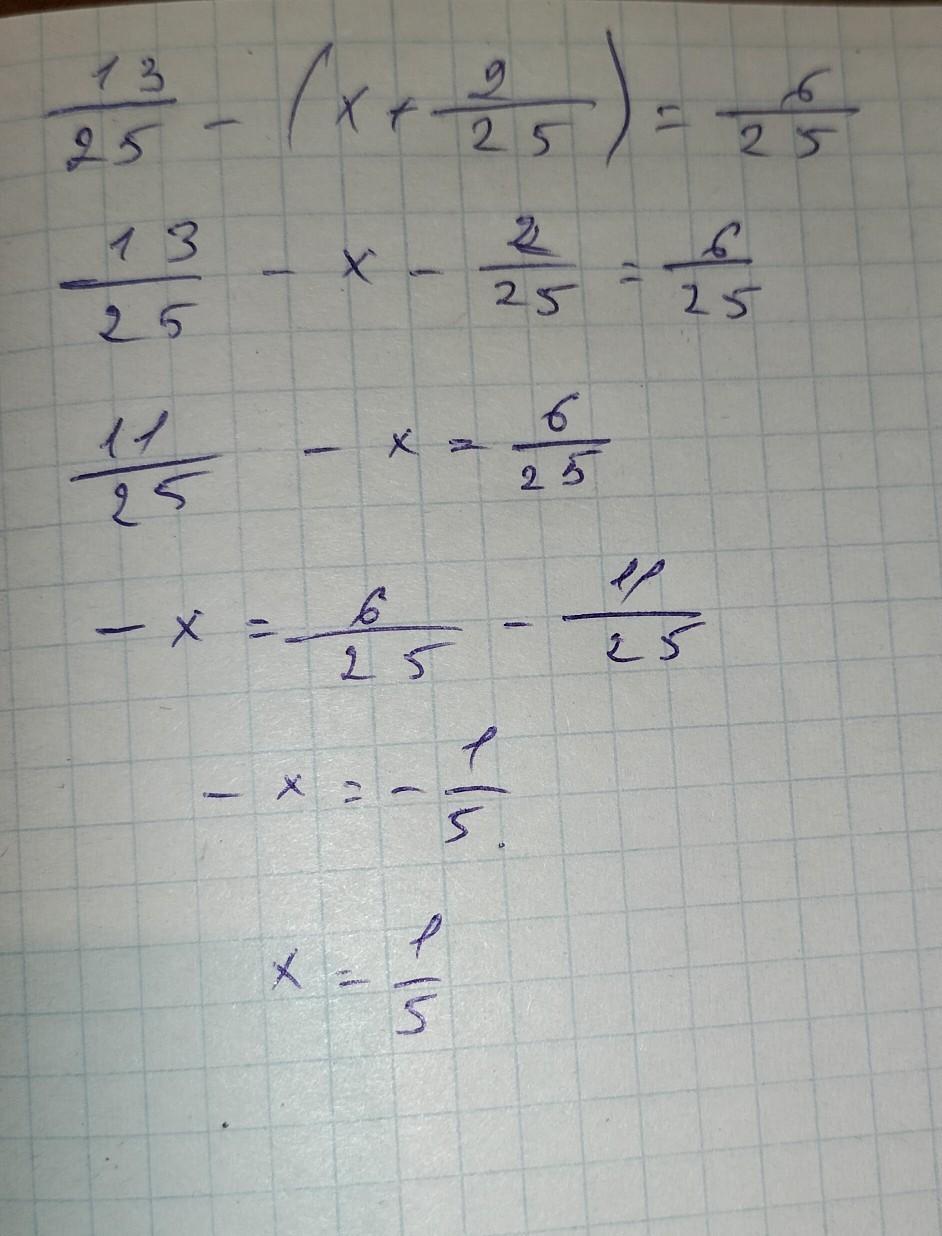 13/25 - (x + 2/25) = 6/25
13/25 - x - 2/25 = 6/25
11/25 - x = 6/25
- x = 6/25 - 11/25
- x = - 1/5.
x = 1/5